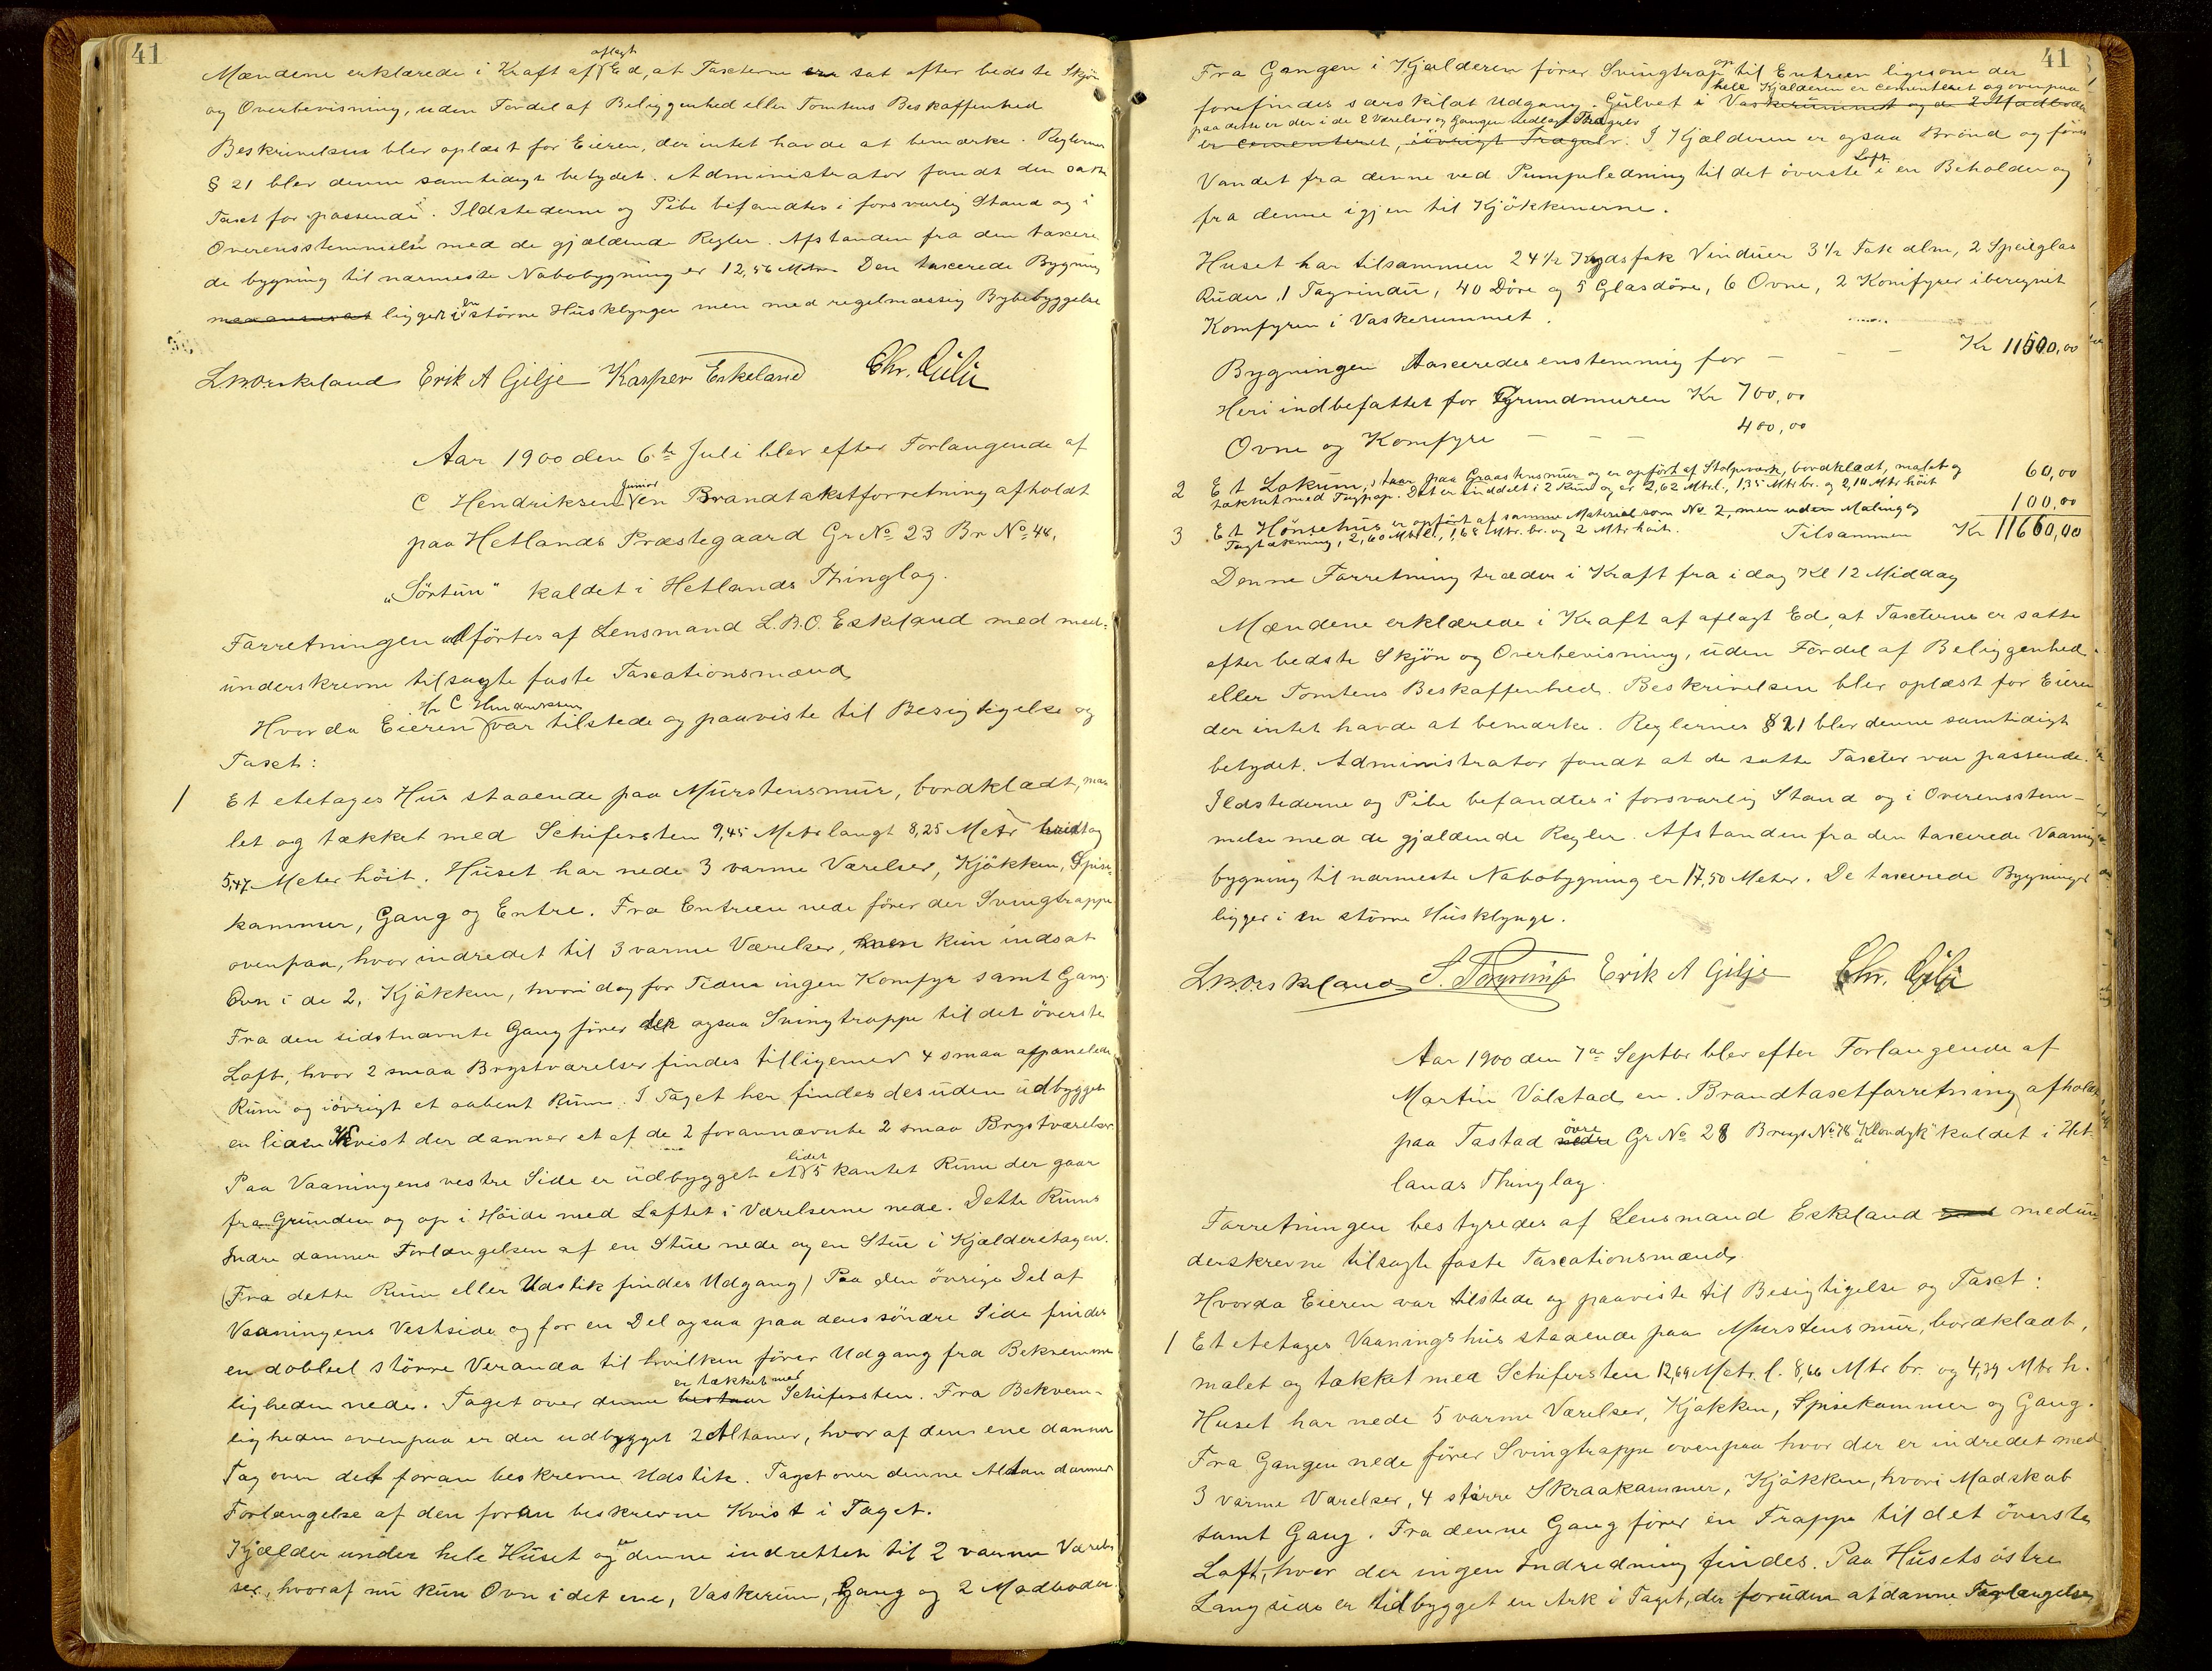 41
Mændene erklærede i Kraft af aflagt Ed, at Taxterne ere sat efter bedste Skjøn
og Overbevisning, uden Fordel af Beliggenhed eller Tomtens Beskaffenhed
Beskrivelsen blev oplæst for Eieren, der intet havde at bemærke. Reglernes
§ 21 blev denne samtidigt betydet. Administrator fandt den satte
Taxt for passende. Ildstederne og Pibe befandtes i forsvarlig Stand og i
Overensstemmelse med de gjældende Regler. Afstanden fra den taxere
de bygning til nærmeste Nabobygning er 12,56 Metr. Den taxerede Bygning
ligger i en större Husklynge men med regelmæssig Bybebyggelse
L.B.O. Eskeland Erik A Gilje Kasper Eskeland Chr. Gilje
Aar 1900 den 6te Juli blev efter Forlangende af
C Hendriksen junior en Brandtakstforretning afholdt
paa Hetlands Præstegaard Gr No 23 Br No 48,
„Sörtun“ kaldet i Hetlands Thinglag.
Forretningen udförtes af Lensmand L.B.O. Eskeland med med-
underskrevne tilsagte faste Taxationsmænd
Hvorda Eieren Hr C Hendriksen var tilstede og paaviste til Besigtigelse og
Taxt:
1 Et etetages Hus staaende paa Murstensmur, bordklædt, ma
let og tækket med Schifersten 9,45 Metr langt 8,25 Metr bredt og
5,47 Meter höit. Huset har nede 3 varme Værelser, Kjökken, Spise
kammer, Gang og Entre. Fra Entreen nede förer der Svingtrappe
ovenpaa, hvor indredet til 3 varme Værelser, men kun indsat
Ovn i de 2, Kjökken, hvori dog for Tiden ingen Komfyr samt Gang.
Fra den sidstnævnte Gang förer der ogsaa Svingtrappe til det överste
Loft, hvor 2 smaa Brystværelser findes tilligemed 4 smaa afpanelede
Rum og iövrigt et aabent Rum. I Taget her findes desuden udbygget
en liden Kvist der danner et af de 2 forannævnte 2 smaa Brystværelser
Paa Vaaningens vestre Side er udbygget et lidet 5 kantet Rum der gaar
fra Grunden og op i Höide med Loftet i Værelserne nede. Dette Rums
Indre danner Forlængelsen af en Stue nede og en Stue i Kjælderetagen.
(Fra dette Rum eller Udstik findes Udgang) Paa den övrige Del af
Vaaningens Vestside og for en Del ogsaa paa dens söndre Side findes
en dobbel större Veranda til hvilken förer Udgang fra Bekvemme
ligheden nede. Taget over denne bestaar er tækket med Schifersten. Fra Bekvem-
ligheden ovenpaa er der udbygget 2 Altaner, hvoraf dens ene danner
Tag over det foran beskrevne Udstik. Taget over denne Altan danner
Forlængelse af den foran beskrevne Kvist i Taget.
Kjælder under hele Huset og er denne indrettet til 2 varme Værel
ser, hvoraf nu kun Ovn i det ene, Vaskerum, Gang og 2 Madboder.
41
Fra Gangen i Kjælderen förer Svingtrap op til Entreen ligesom der
hele Kjælderen er cementeret og ovenpaa
forefindes særskilt Udgang. Gulvet i Vaskerummet og de 2 Madboder
paa dette er der i de 2 Værelser og Gangen nedlagt Trægulv
er cementeret, iövrigt Trægulv. I Kjælderen er ogsaa Brönd og föres
Vandet fra denne ved Pumpeledning til det överste Loft i en Beholder og
fra denne igjen til Kjökkenerne.
Huset har tilsammen 24 1/2 Krydsfak Vinduer 3 1/2 Fak alm, 2 Speilglas
Ruder, 1 Tagvindu, 40 Döre og 5 Glasdöre, 6 Ovne, 2 Komfyrer iberegnet
Komfyren i Vaskerummet.
Bygningen taxeredes enstemmig for - - - Kr 11500,00
Heri indbefattet for Grundmuren Kr 700,00
Ovne og Komfyre - - - 400,00
2 Et Lokum, staar paa Graastensmur og er opfört af Stolpeværk, bordklædt, malet og 60,00
tækket med Tagpap. Det er inddelt i 2 Rum og er 2,62 Mtr l., 1,35 Mtr br. og 2,14 Mtr höit
3 Et Hönsehus er opfört af samme Material som No 2, men uden Maling og 100,00
Tagtækning, 2,60 Mtr l., 1,68 Mtr. br. og 2 Mtr höit. Tilsammen Kr 11660,00
Denne Forretning træder i Kraft fra i dag Kl 12 Middag
Mændene erklærede i Kraft af aflagt Ed, at Taxterne er satte
efter bedste Skjön og Overbevisning, uden Fordel af Beliggenhed
eller Tomtens Beskaffenhed. Beskrivelsen blev oplæst for Eieren
der intet havde at bemærke. Reglernes § 21 blev denne samtidigt
betydet. Administrator fandt at de satte Taxter var passende.
Ildstederne og Pibe befandtes i forsvarlig Stand og i Overensstem-
melse med de gjældende Regler. Afstanden fra den taxerede Vaanings
bygning til nærmeste Nabobygning er 17,50 Meter. De taxerede Bygninger
ligger i en större Husklynge.
L.B.O. Eskeland Erik A Gilje Chr. Gilje
Aar 1900 den 7de Septbr blev efter Forlangende af
Martin Válstad en Brandtaxtforretning afholdt
paa Tastad nedre övre Gr No 28 Brugs No 78 „Klondyk“ kaldet i Het-
lands Thinglag.
Forretningen bestyredes af Lensmand Eskeland medun
derskrevne tilsagte faste Taxationsmænd.
Hvorda Eieren var tilstede og paaviste til Besigtigelse og Taxt:
1 Et etetages Vaaningshus staaende paa Murstensmur, bordklædt,
malet og tækket med Schifersten 12,69 Metr. l. 8,66 Mtr br. og 4,39 Mtr h.
Huset har nede 5 varme Værelser, Kjökken, Spisekammer og Gang.
Fra Gangen nede förer Svingtrappe ovenpaa hvor der er indredet med
3 varme Værelser, 4 större Skraakammer, Kjökken, hvori Madskab
samt Gang. Fra denne Gang förer en Trappe til det överste
Loft, hvor der ingen Indredning findes. Paa Husets östre
Langside er tilbygget en Ark i Taget, der foruden at danne Forlængelse